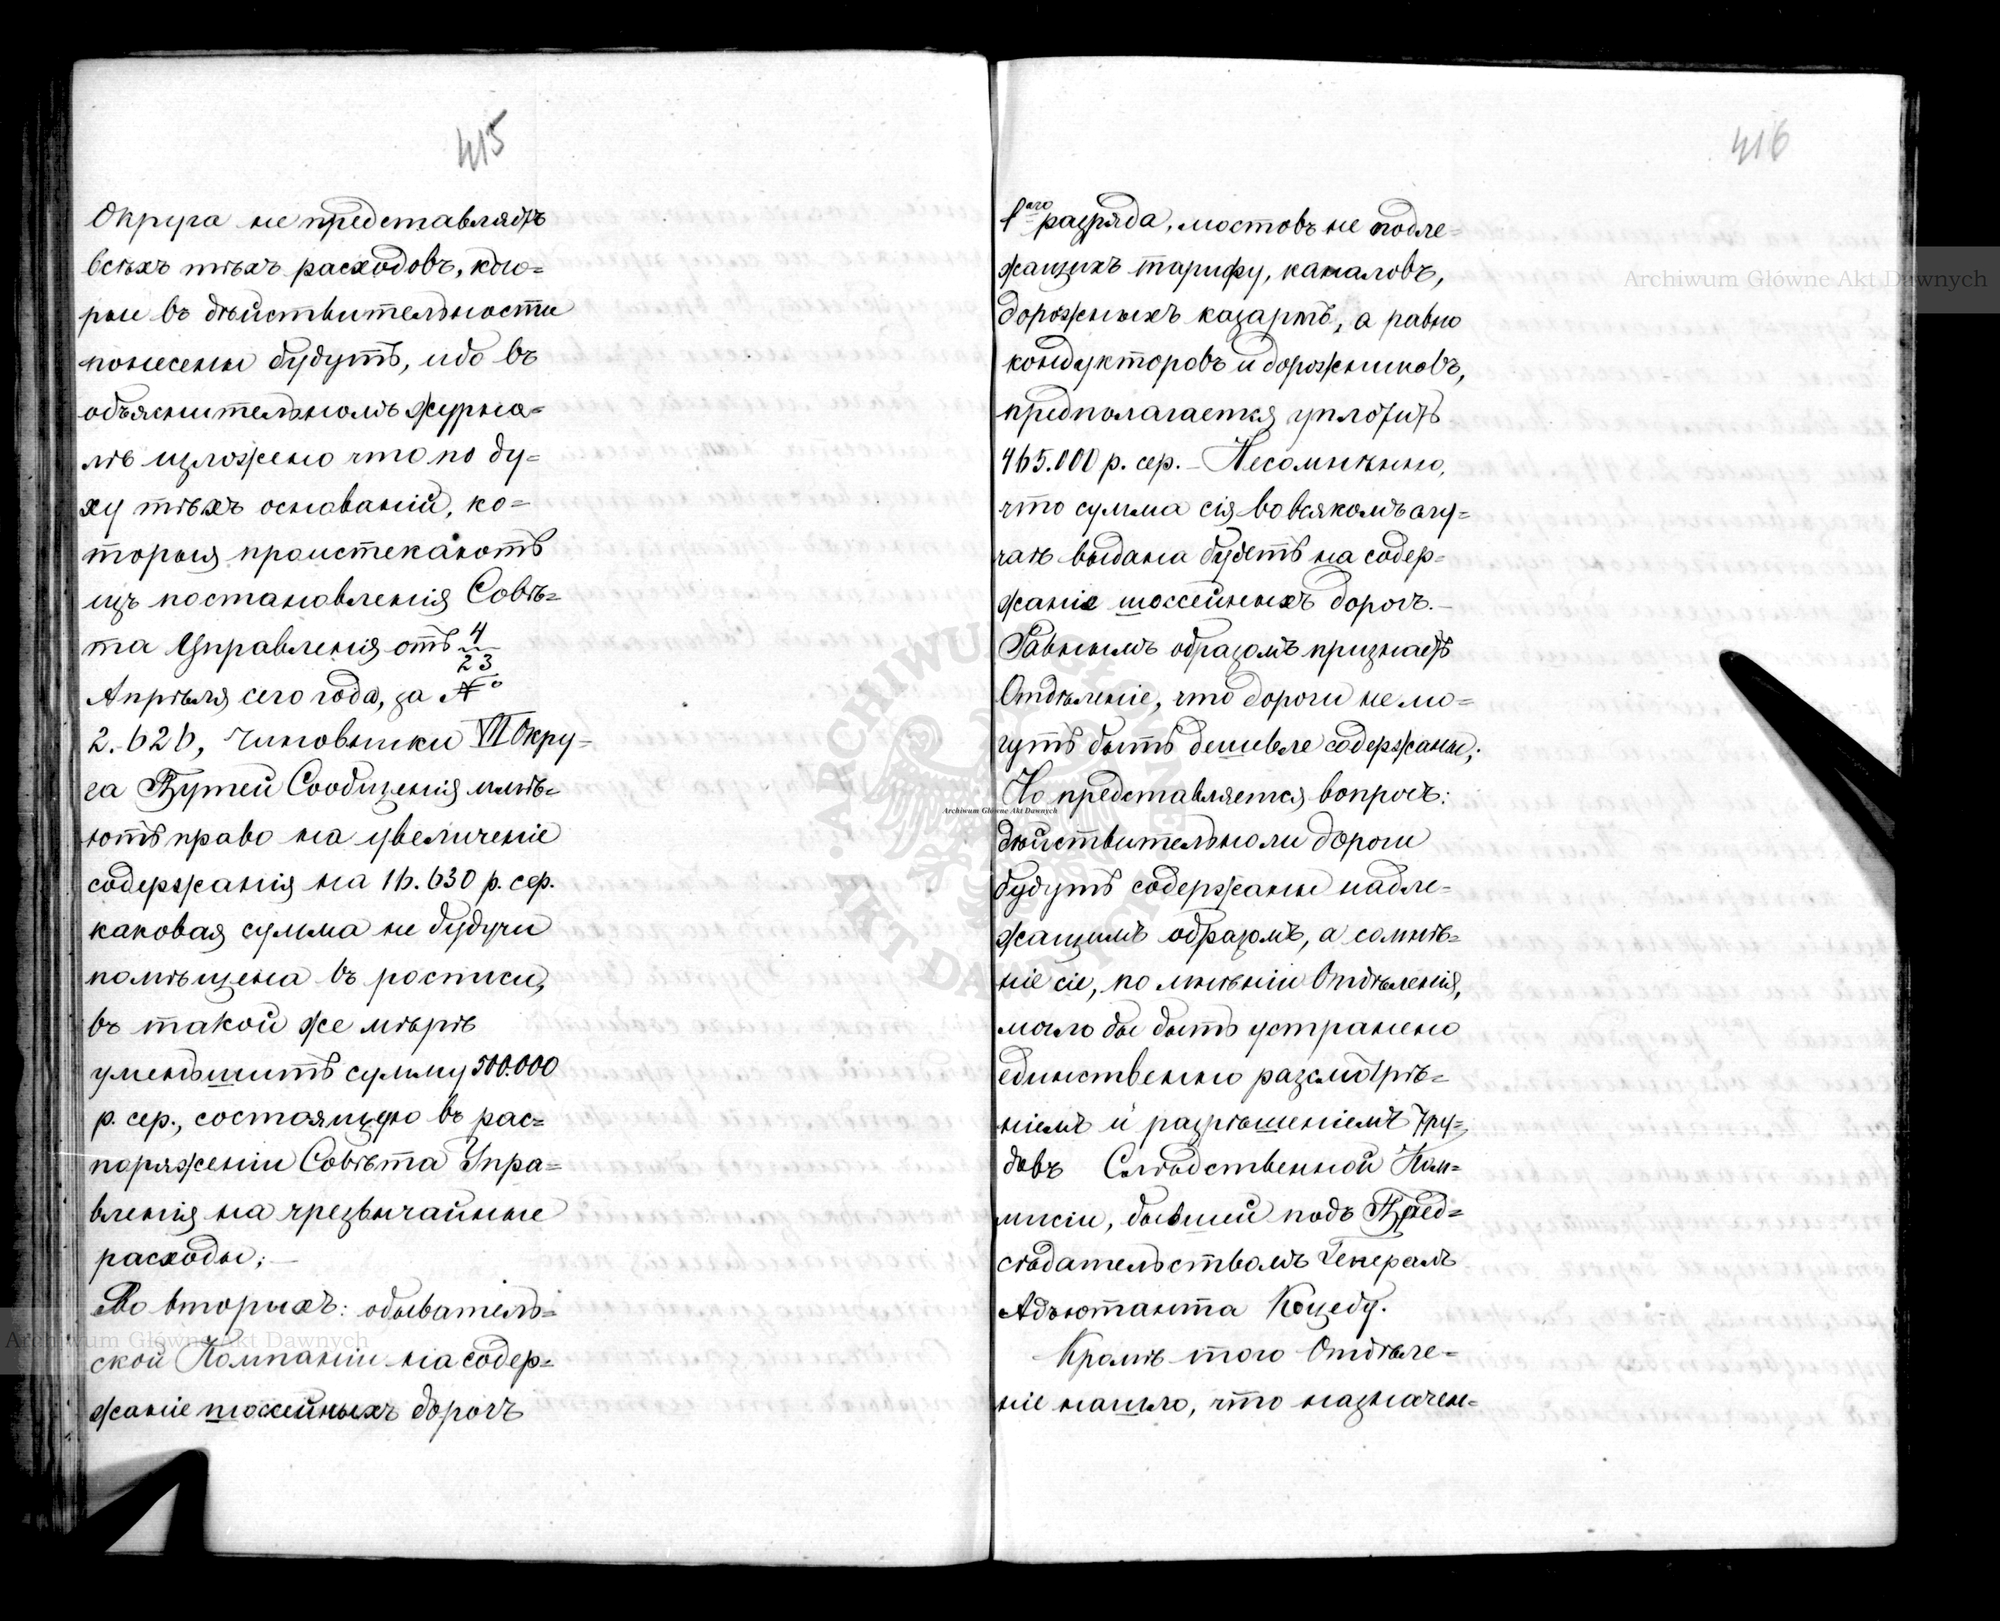 415
Округа не представляетъ
всѣхъ тѣхъ расходовъ, кото=
рые въ дѣйствительности
понесены будутъ, ибо въ
объяснительномъ журна=
лѣ изложено что по ду=
ху тѣхъ основаній, ко=
торыя проистекаютъ
изъ постановленія Совѣ=
та Управленія отъ 4/23
Апрѣля сего года, за №
2.626, Чиновники VII Окру=
га Путей Сообщенія имѣ=
ютъ право на увеличеніе
содержанія на 16.630 р. сер.
каковая сумма не будучи
помѣщена въ росписи,
въ такой же мѣрѣ
уменьшитъ сумму 500.000
р. сер., состоящую въ рас=
поряженіи Совѣта Упра=
вленія на чрезвычайные
расходы; —
Во вторыхъ: обывательс=
ской Компаніи на содер=
жаніе шоссейныхъ дорогъ
416
1аго разряда, мостовъ не подле=
жащихъ тарифу, каналовъ,
дорожныхъ казармъ, а равно
кондукторовъ и дорожниковъ,
предполагается уплотить
465.000 р. сер. — Несомнѣнно,
что сумма сія во всякомъ слу=
чаѣ выдана будетъ на содер=
жаніе шоссейныхъ дорогъ. —
Равнымъ образомъ признаетъ
Отдѣленіе, что дороги не мо=
гутъ быть дешевле содержаны;
Но представляется вопросъ:
дѣйствительно ли дороги
будутъ содержаны надле=
жащимъ образомъ, а сомнѣ=
ніе сіе, по мнѣнію Отдѣленія,
могло бы быть устранено
единственно разсмотрѣ=
ніемъ и разрѣшеніемъ тру=
довъ Слѣдственной Ком=
мисіи, бывшей подъ Пред=
сѣдательствомъ Генералъ
Адъютанта Коцебу.
Кромѣ того Отдѣле=
ніе нашло, что назначен=
Archiwum Główne Akt Dawnych
Archiwum Główne Akt Dawnych
Archiwum Główne Akt Dawnych